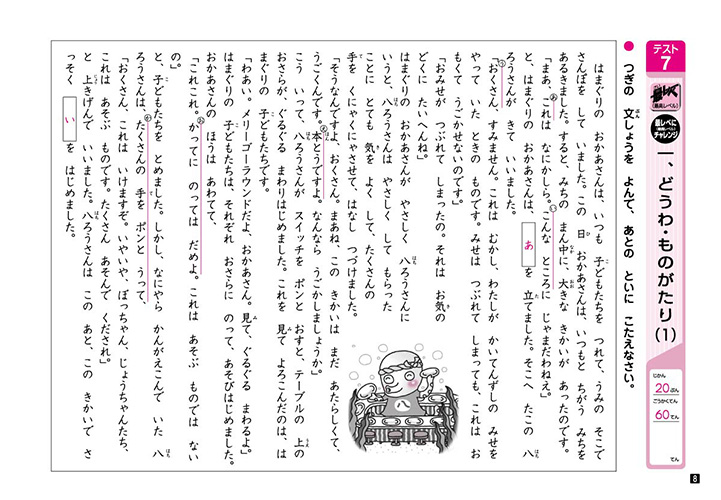 テスト
7
最レベ
(最高レベル)
最レベに
(最高レベル)
チャレンジ
一、どうわ・ものがたり(1)
じかん
20ぷん
ごうかくてん
60てん
てん
● つぎの 文しょうを よんで、あとの といに こたえなさい。
はまぐりの おかあさんは、いつも 子どもたちを つれて、うみの そこで
さんぽを して いました。この 日 おかあさんは、いつもと ちがう みちを
あるきました。すると、みちの まん中に、大きな きかいが あったのです。
「まあ、これは なにかしら。こんな ところに じゃまだわねえ。」
と、はまぐりの おかあさんは、 あ を 立てました。そこへ たこの 八
ろうさんが きて いいました。
「おくさん、すみません。これは むかし、わたしが かいてんずしの みせを
やって いた ときの ものです。みせは つぶれて しまっても、これは お
もくて うごかせないのです。」
「おみせが つぶれて しまったの。それは お気の
どくに たいへんね。」
はまぐりの おかあさんが やさしく 八ろうさんに
いうと、八ろうさんは やさしく して もらった
ことに とても 気を よく して、たくさんの
手を くにゃくにゃさせて、はなし つづけました。
「そうなんですよ、おくさん。まあね、この きかいは まだ あたらしくて、
うごくんです。本とうですよ。なんなら うごかしましょうか。」
こう いって、八ろうさんが スイッチを ポンと おすと、テーブルの 上の
おさらが、ぐるぐる まわりはじめました。これを 見て よろこんだのは、は
まぐりの 子どもたちです。
「わあい。メリーゴーラウンドだよ、おかあさん。見て、ぐるぐる まわるよ。」
はまぐりの 子どもたちは、それぞれ おさらに のって、あそびはじめました。
おかあさんの ほうは あわてて、
「これこれ。かってに のっては だめよ。これは あそぶ ものでは ない
の。」
と、子どもたちを とめました。しかし、なにやら かんがえこんで いた 八
ろうさんは、たくさんの 手を ポンと うって、
「おくさん、これは いけますぞ。いやいや、ぼっちゃん、じょうちゃんたち、
これは あそぶ ものです。たくさん あそんで くだされ。」
と 上きげんで いいました。八ろうさんは この あと、この きかいで さ
っそく い を はじめました。
八
8